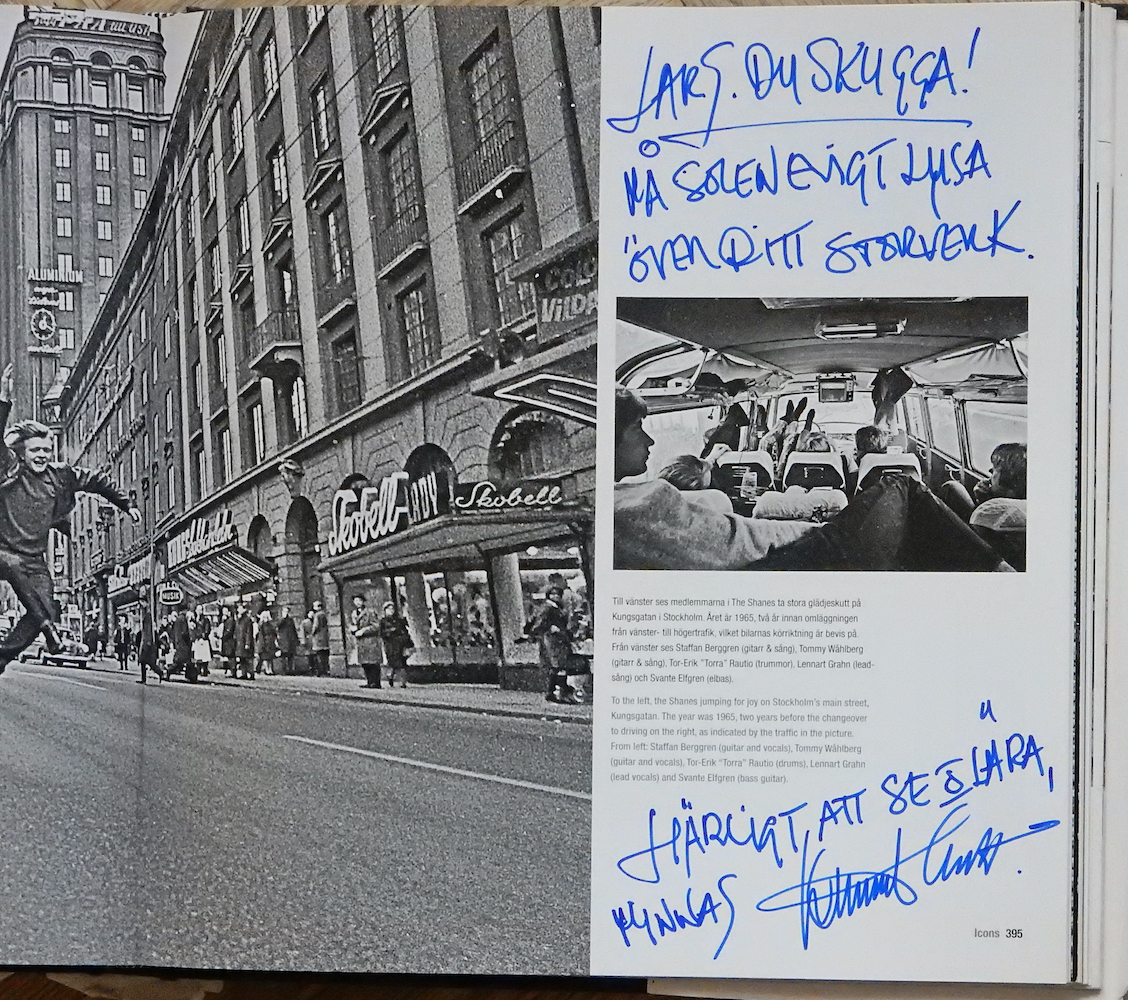 ALUMINIUM
Skobell-LADY
Skobell
MUSIK
LARS. DU SKUGGA!
MÅ SOLEN EVIGT LYSA
ÖVER DITT STORVERK.
Till vänster ses medlemmarna i The Shanes ta stora glädjeskutt på
Kungsgatan i Stockholm. Året är 1965, två år innan omläggningen
från vänster- till högertrafik, vilket bilarnas körriktning är bevis på.
Från vänster ses Staffan Berggren (gitarr & sång), Tommy Wåhlberg
(gitarr & sång), Tor-Erik "Torra" Rautio (trummor), Lennart Grahn (lead-
sång) och Svante Elfgren (elbas).
To the left, the Shanes jumping for joy on Stockholm's main street,
Kungsgatan. The year was 1965, two years before the changeover
to driving on the right, as indicated by the traffic in the picture.
From left: Staffan Berggren (guitar and vocals), Tommy Wåhlberg
(guitar and vocals), Tor-Erik "Torra" Rautio (drums), Lennart Grahn
(lead vocals) and Svante Elfgren (bass guitar).
HÄRLIGT, ATT SE & LÄRA,
MINNAS
Icons 395